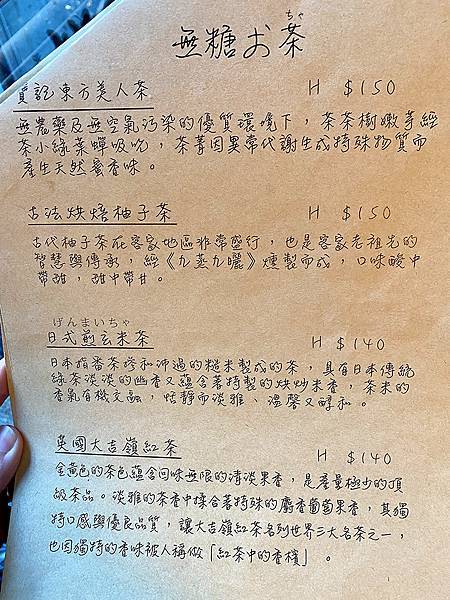 ちゃ
無糖お茶
東方美人茶 H $150
無農藥及無空氣污染的優質環境下，茶茶樹嫩芽經
茶小綠葉蟬吸吮，茶菁因異常代謝生成特殊物質而
產生天然蜜香味。
古法烘焙柚子茶 H $150
古代柚子茶在客家地區非常盛行，也是客家老祖先的
智慧與傳承，經《九蒸九曬》燻製而成，口味酸中
帶甜，甜中帶甘。
げんまいちゃ
日式煎玄米茶 H $140
日本指番茶摻和沸過的糙米製成的茶，具有日本傳統
綠茶淡淡的幽香又蘊含著特製的烘炒米香，茶米的
香氣有機交融，恬靜而淡雅、溫馨又醇和。
英國大吉嶺紅茶 H $140
金黃色的茶色蘊含回味無限的清淡果香，是產量極少的頂
級茶品。淡雅的茶香中揉合著特殊的麝香葡萄果香，其獨
特口感與優良品質，讓大吉嶺紅茶名列世界三大名茶之一，
也因獨特的香味被人稱做「紅茶中的香檳」。